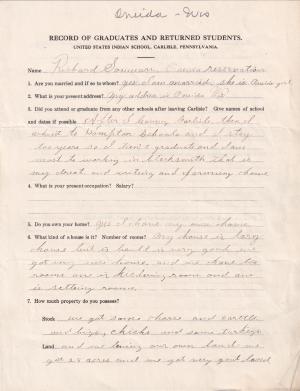 Oneida - Wis
RECORD OF GRADUATES AND RETURNED STUDENTS.
UNITED STATES INDIAN SCHOOL, CARLISLE, PENNSYLVANIA.
Name Richard Oneida reservation
1. Are you married and if so to whom? yes I am married she is Oneida girl
2. What is your present address? My address is Oneida
3. Did you attend or graduate from any other schools after leaving Carlisle? Give names of school
and dates if possible After I leaving Carlisle then I
went to Hampton Schools and I stay
two years so I hence graduate and I am
most to working in blacksmith that is
my trade and and farming
4. What is your present occupation? Salary?
5. Do you own your home? yes I have my own home
6. What kind of house is it? Number of rooms? My house is large
house but is build is very good we
got in our house, and we have two
rooms one is kitchening room and one
is setting room.
7. How much property do you possess?
Stock we got some horse and cattle
and pigs, chicks and some turkeys
Land and we living our own land we
got 28 acres and we got very good land